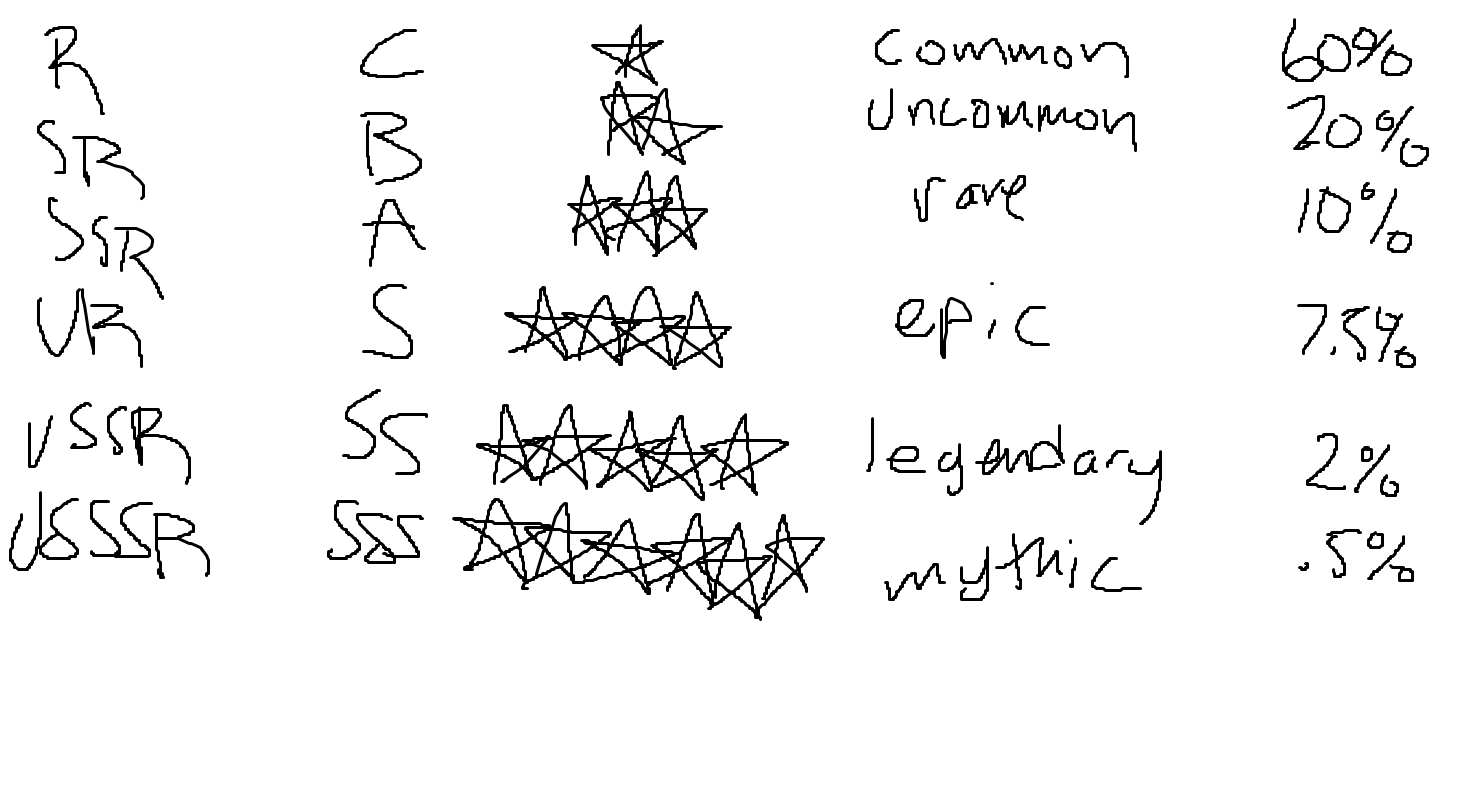 R C common 60%
SR B uncommon 20%
SSR A rare 10%
UR S epic 7.5%
USSR SS legendary 2%
USSSR SSS mythic .5%